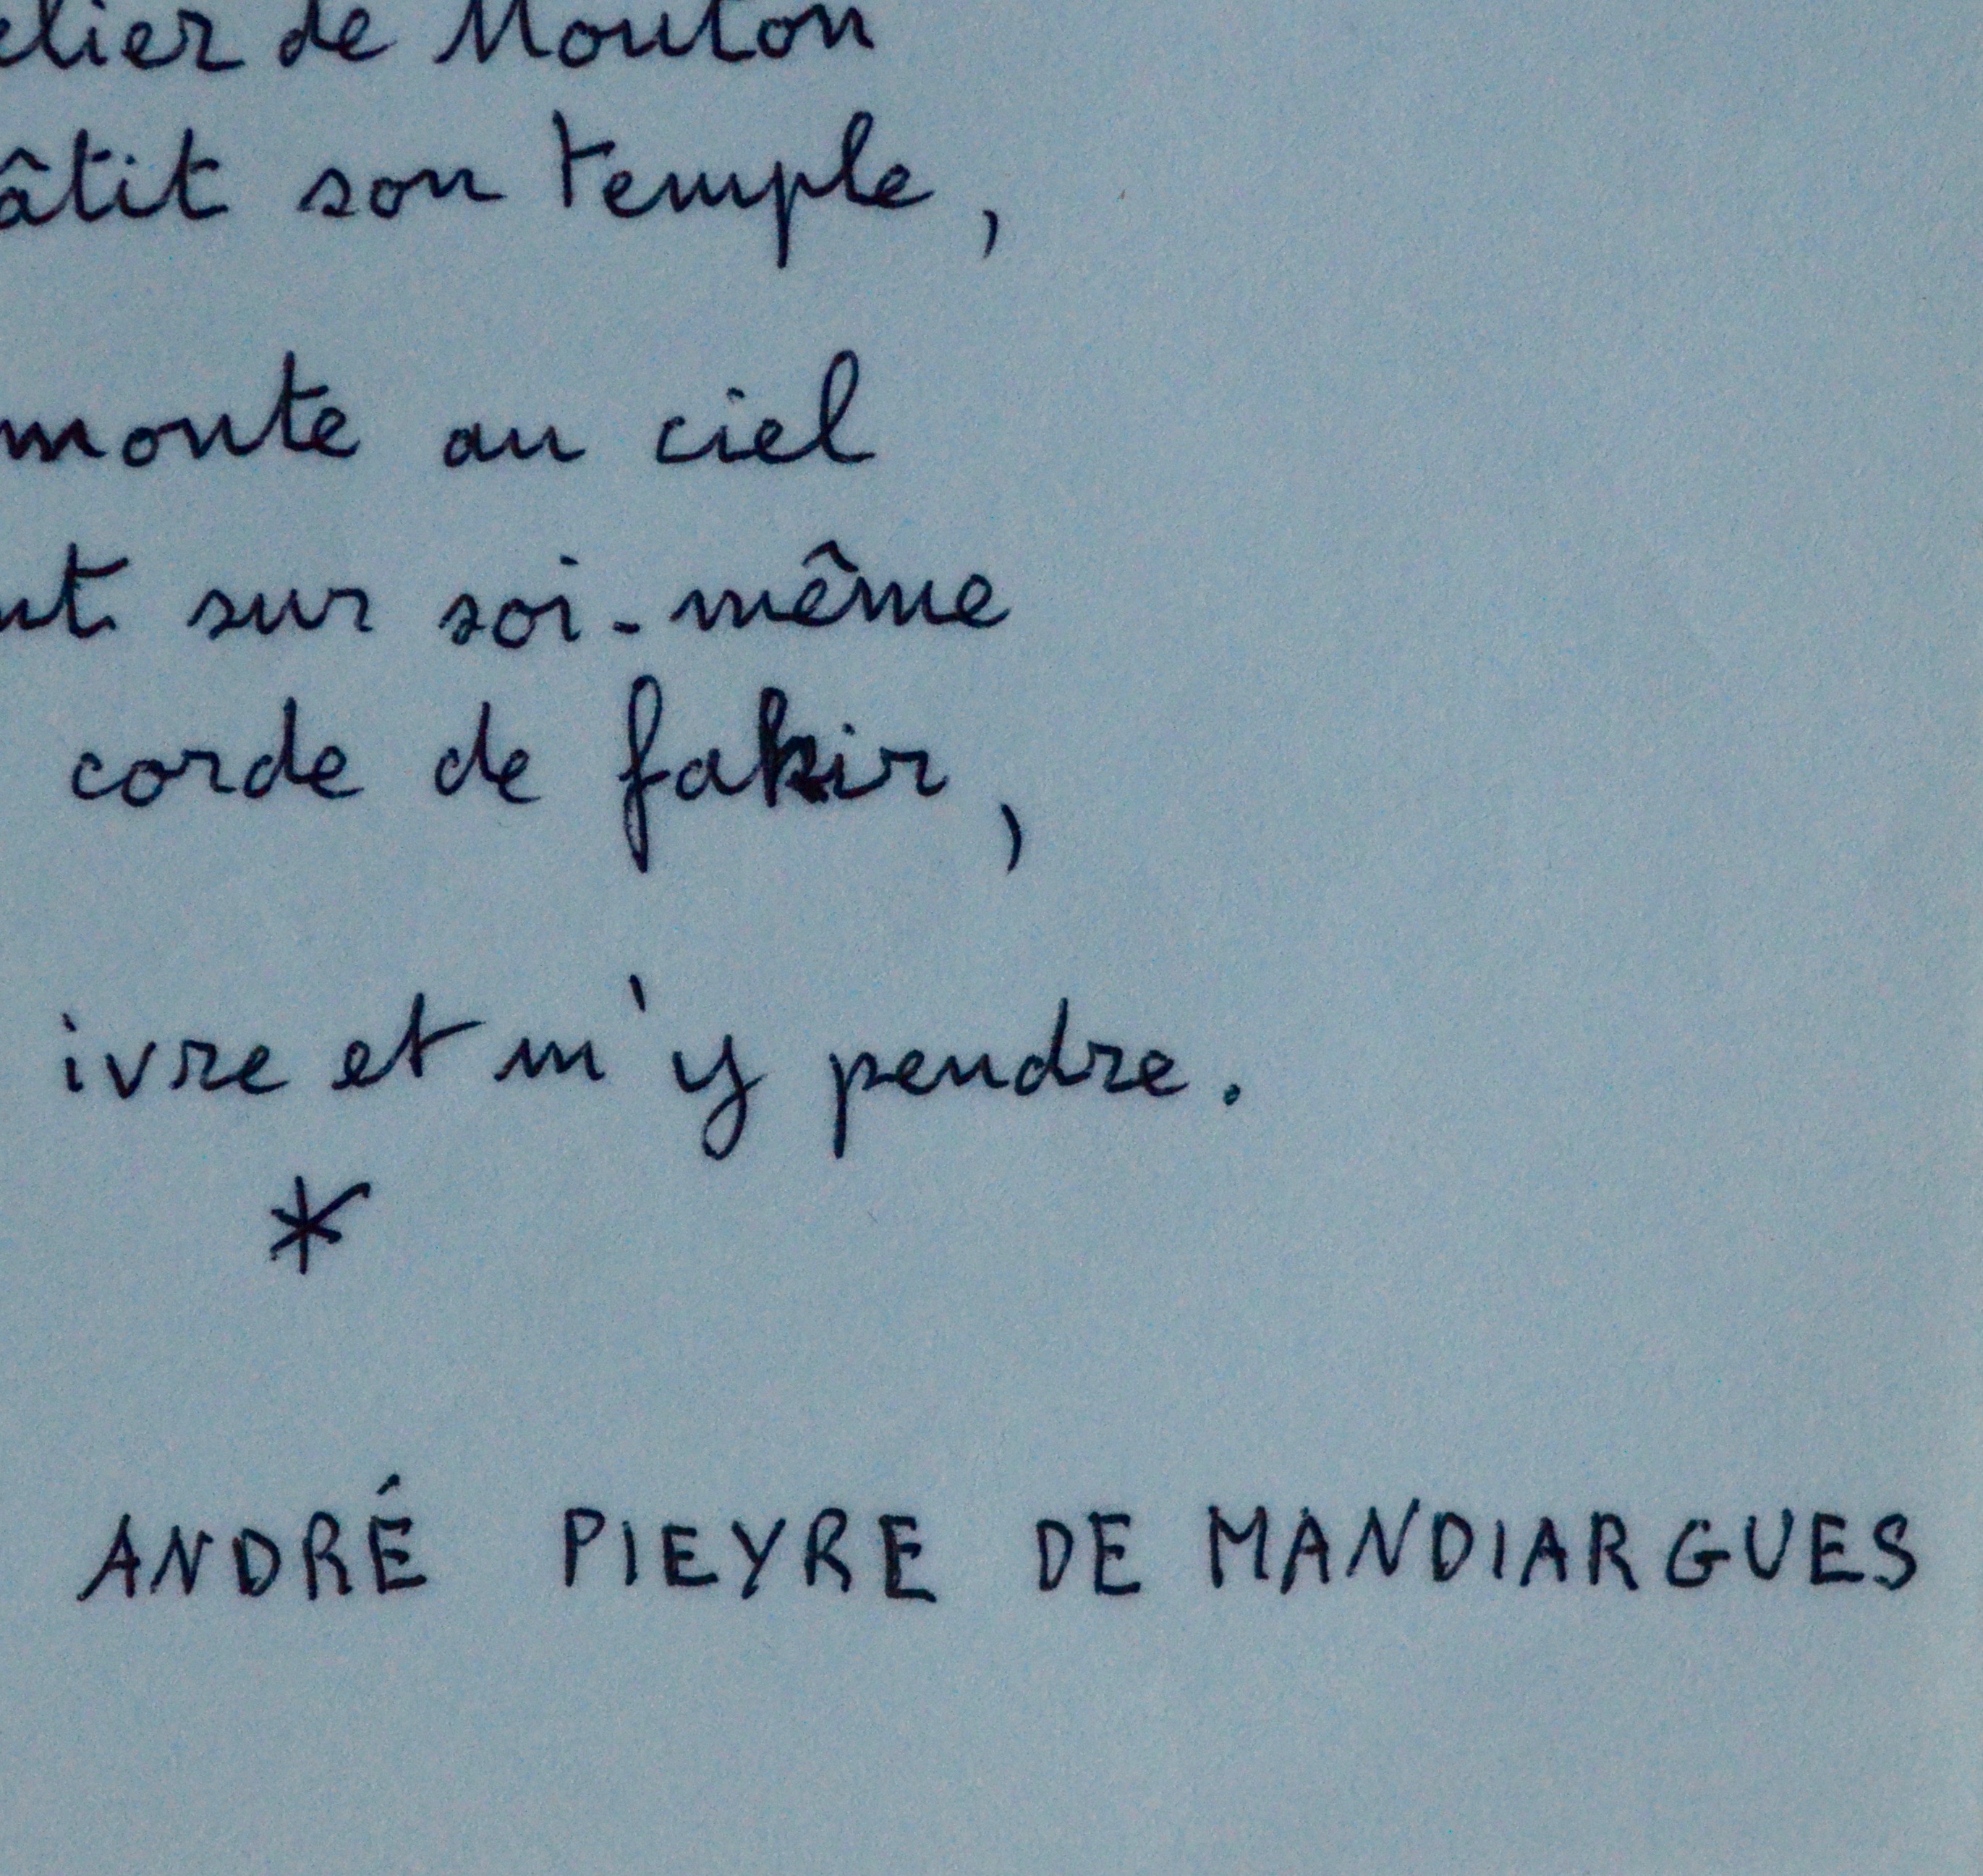 elier de Mouton
âtit son temple,
monte au ciel
nt sur soi-même
corde de fakir,
ivre et m'y pendre.
*
ANDRÉ PIEYRE DE MANDIARGUES